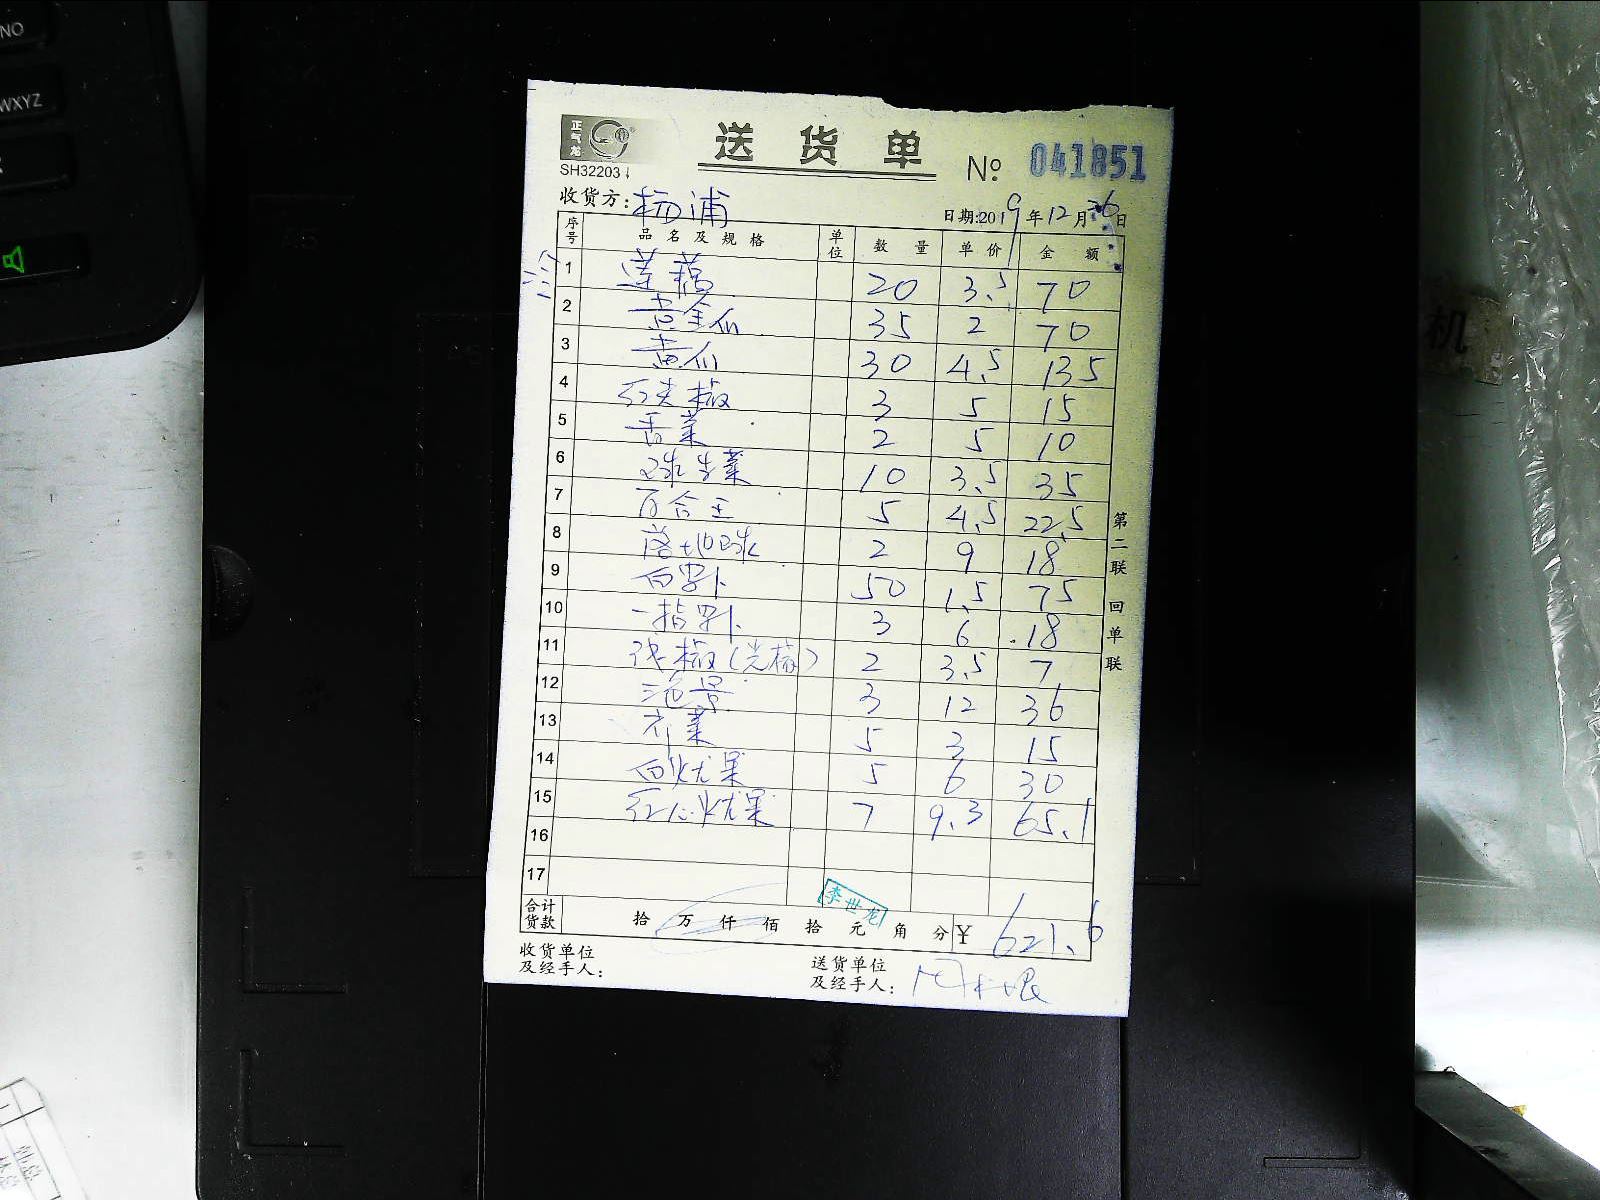 NO
WXYZ
正气龙
送货单
SH32203
№ 041851
收货方: 杨浦
日期:2019年12月26日
序号 品名及规格 单位 数量 单价 金额
1 莲藕 20 3.5 70
2 黄金瓜 35 2 70
3 黄瓜 30 4.5 135
4 红尖椒 3 5 15
5 香菜 2 5 10
6 球生菜 10 3.5 35
7 百合王 5 4.5 22.5
8 2 9 18
9 白萝卜 50 1.5 75
10 一指萝卜 3 6 18
11 椒(尖椒) 2 3.5 7
12 三色 3 12 36
13 芹菜 5 3 15
14 白火龙果 5 6 30
15 红心火龙果 7 9.3 65.1
16
17
合计货款 拾 万 仟 佰 拾 元 角 分 ¥ 621.6
李世龙
收货单位及经手人:
送货单位及经手人:
第二联 回单联
机